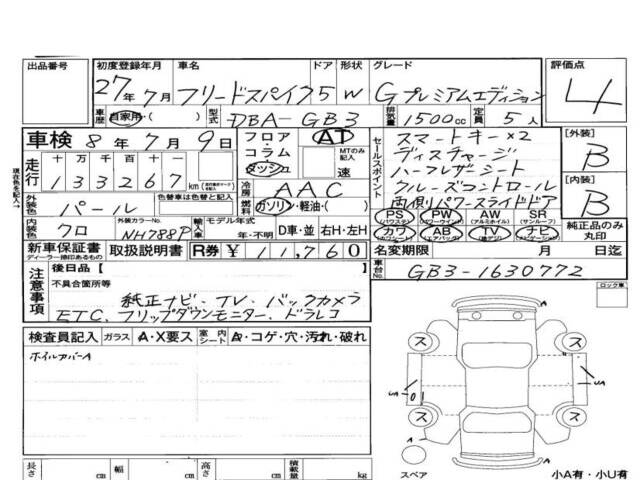 出品番号 初度登録年月 車名 ドア 形状 グレード 評価点
27年7月 フリードスパイク 5 W Gプレミアムエディション 4
車歴 自家用・( ) 型式 DBA-GB3 排気量 1500cc 定員 5人
車検 8年7月9日 フロア・コラム・ダッシュ AT MTのみ記入 速
セールスポイント スマートキー×2
ディスチャージ
ハーフレザーシート
クルーズコントロール
両側パワースライドドア
[外装] B
[内装] B
走行 十万 千百十 133267 km
現在色を記入→
外装色 パール 色替車は色替と記入
冷房 AAC
燃料 ガソリン・軽油・( )
内装色 クロ 外装カラーNo. NH788P 輸入車 モデル年式 年・不明 D車・並 右H・左H
PS (パワステ) PW (パワーウインド) AW (アルミホイル) SR (サンルーフ)
カワ AB TV ナビ
純正品のみ丸印
新車保証書 ディーラー捺印あるもの 取扱説明書 R券 ¥11,760
名変期限 月 日迄
車台No. GB3-1630772
注意事項 後日品【
不具合箇所等
純正ナビ、TV、バックカメラ
ETC、フリップダウンモニター、ドラレコ
ロック車
検査員記入 ガラス A・X要ス 室内シート A・コゲ・穴・汚れ・破れ
ホイルカバーA
ス ス
UA UA
ス ス
A A
長さ cm 幅 cm 高さ cm 積載量 kg
スペア 小A有・小U有